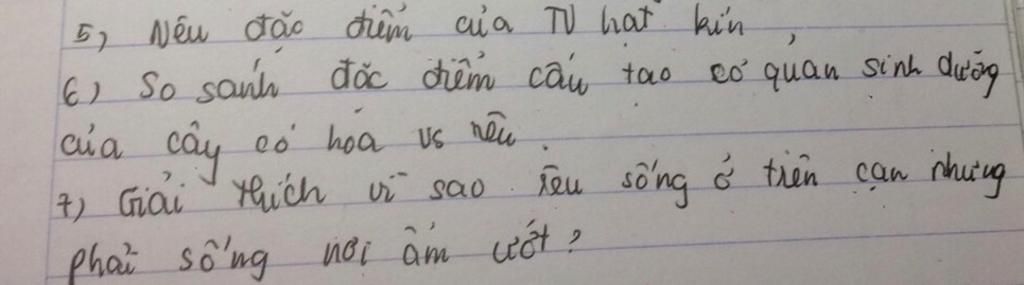 5) Nêu đặc điểm của TV hạt kín,
6) So sánh đặc điểm cấu tạo cơ quan sinh dưỡng
của cây có hoa vs rêu.
7) Giải thích vì sao rêu sống ở trên cạn nhưng
phải sống nơi ẩm ướt?